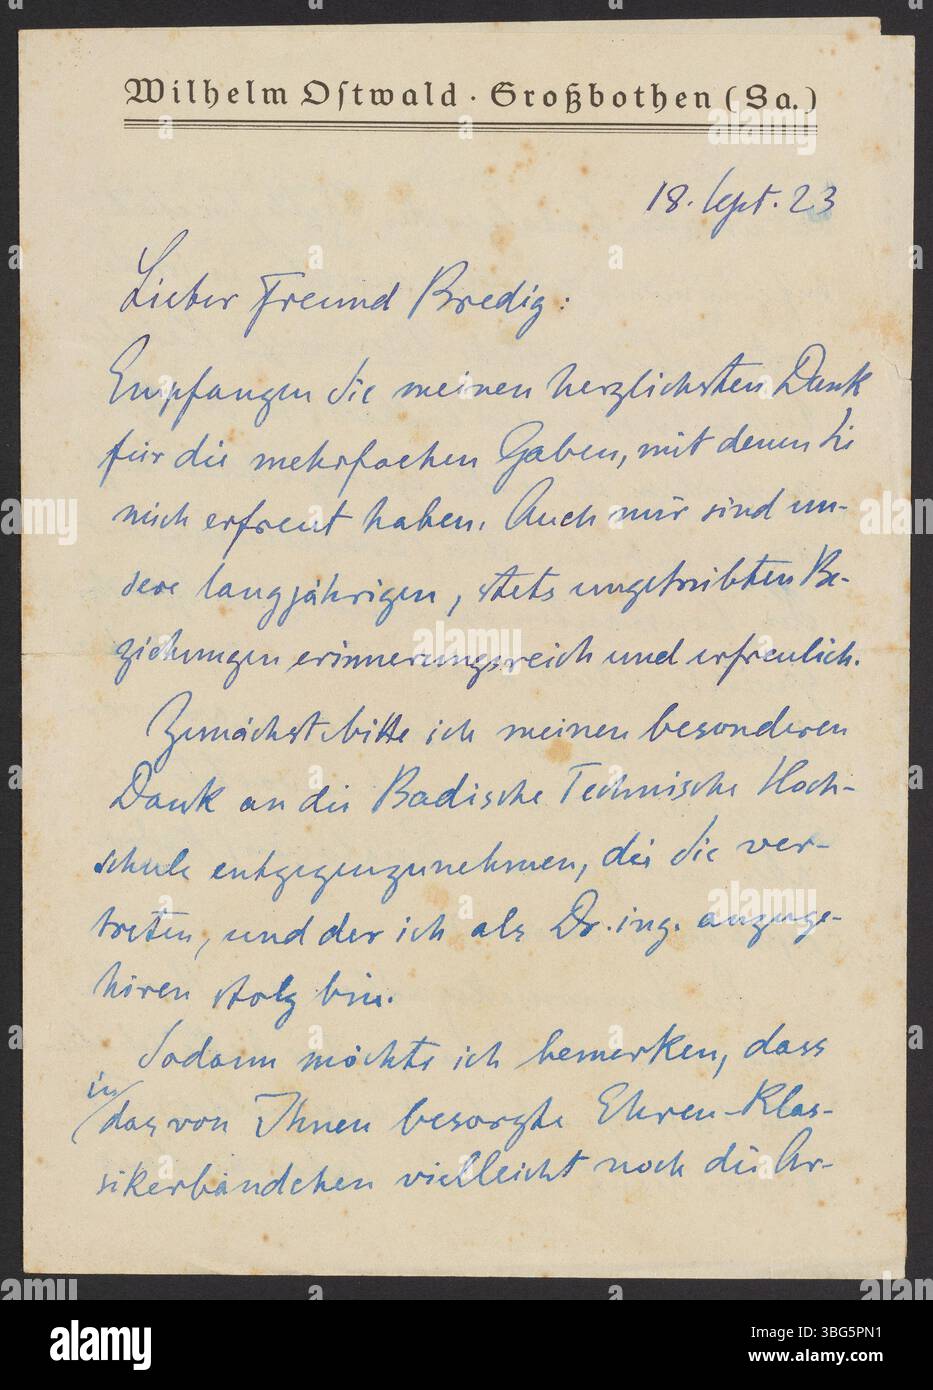 Wilhelm Ostwald · Großbothen (Sa.)
18. Sept. 23
Lieber Freund Bredig:
Empfangen Sie meinen herzlichsten Dank
für die mehrfachen Gaben, mit denen Sie
mich erfreut haben. Auch mir sind un-
sere langjährigen, stets ungetrübten Be-
ziehungen erinnerungsreich und erfreulich.
Zunächst bitte ich meinen besonderen
Dank an die Badische Technische Hoch-
schule entgegenzunehmen, die Sie ver-
treten, und der ich als Dr. ing. anzuge-
hören stolz bin.
Sodann möchte ich bemerken, dass
in
das von Ihnen besorgte Ehren-Klas-
sikerbändchen vielleicht noch die Ar-
alamy
Image ID: 3BG5PN1
www.alamy.com